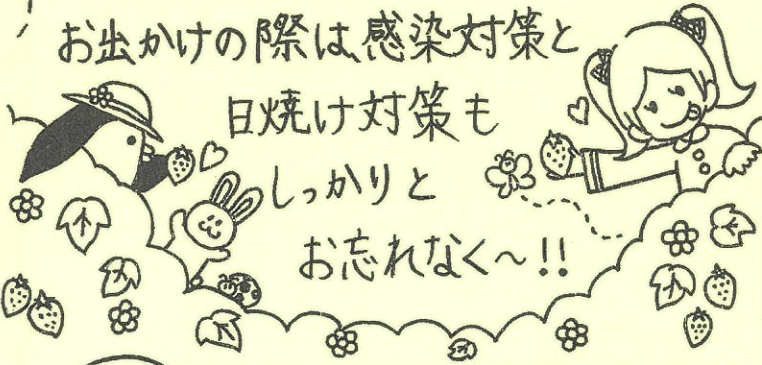 お出かけの際は、感染対策と
日焼け対策も
しっかりと
お忘れなく〜!!